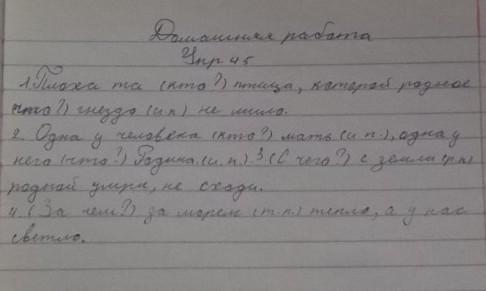 Домашняя работа
Упр 45
1. Плоха та (кто?) птица, которой родное
что?) гнездо (и.п) не мило.
2. Одна у человека (кто?) мать (и.п.), одна у
него (что?) Родина (и.п.) 3 (С чего?) с земли (р.п)
родной умри, не сходи.
4. (За чем?) за морем (т.п.) тепло, а у нас
светло.